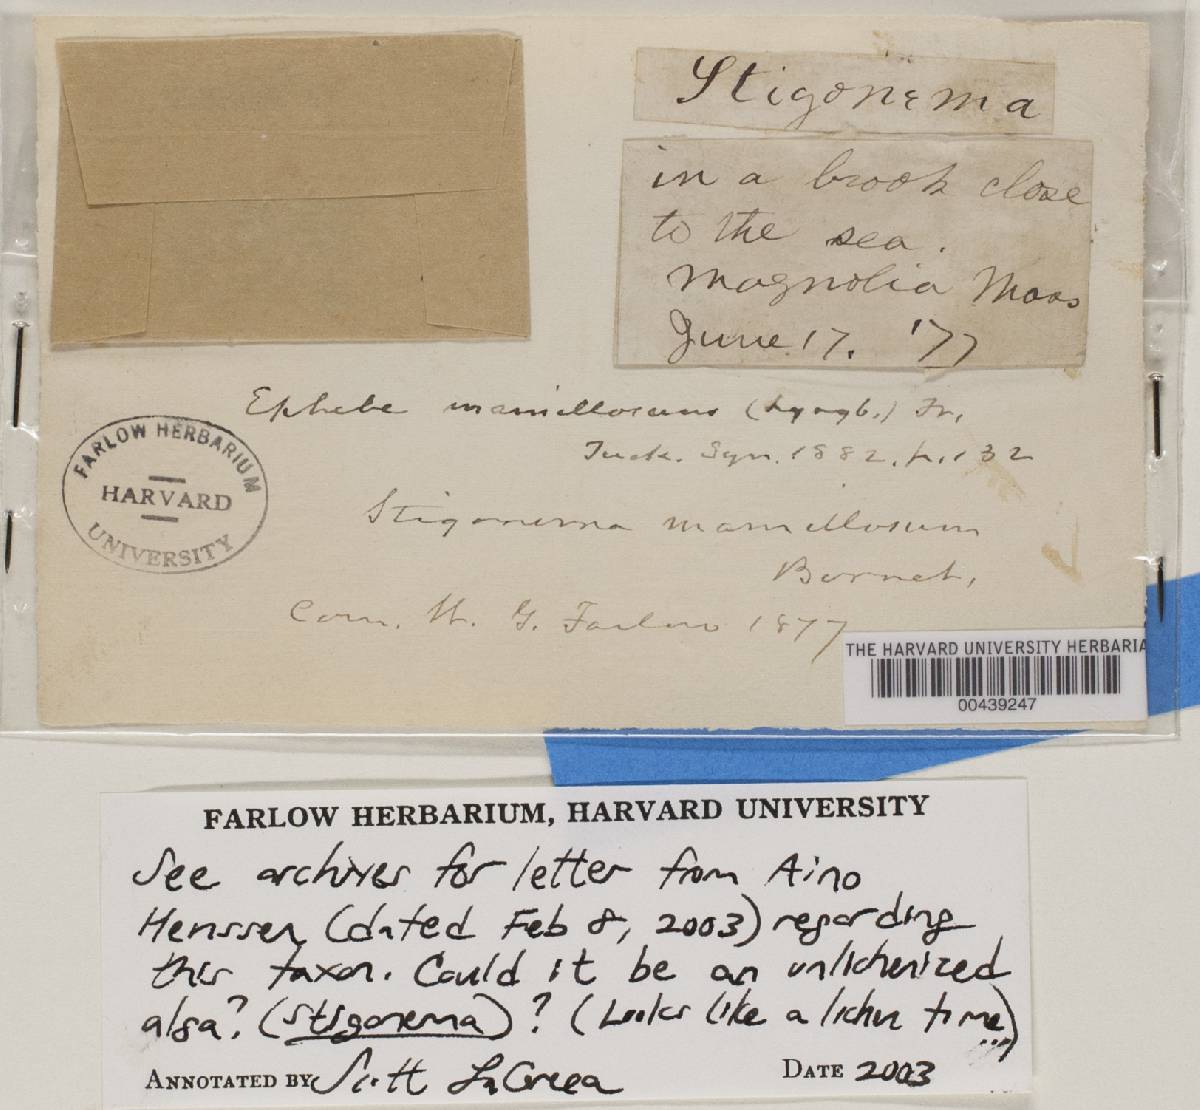 Stigonema
in a brook close
to the sea.
Magnolia Mass
June 17. '77
Ephebe mamillosum (Lyngb.) Fr.
Tuck. Syn. 1882, p. 132
FARLOW HERBARIUM
HARVARD
UNIVERSITY
Stigonema mamillosum
Bornet,
Com. W. G. Farlow 1877
THE HARVARD UNIVERSITY HERBARIA
00439247
FARLOW HERBARIUM, HARVARD UNIVERSITY
See archives for letter from Aino
Henssen (dated Feb 8, 2003) regarding
this taxon. Could it be an unlichenized
alga? (stigonema)? (Looks like a lichen to me...)
ANNOTATED BY Scott LaGreca DATE 2003